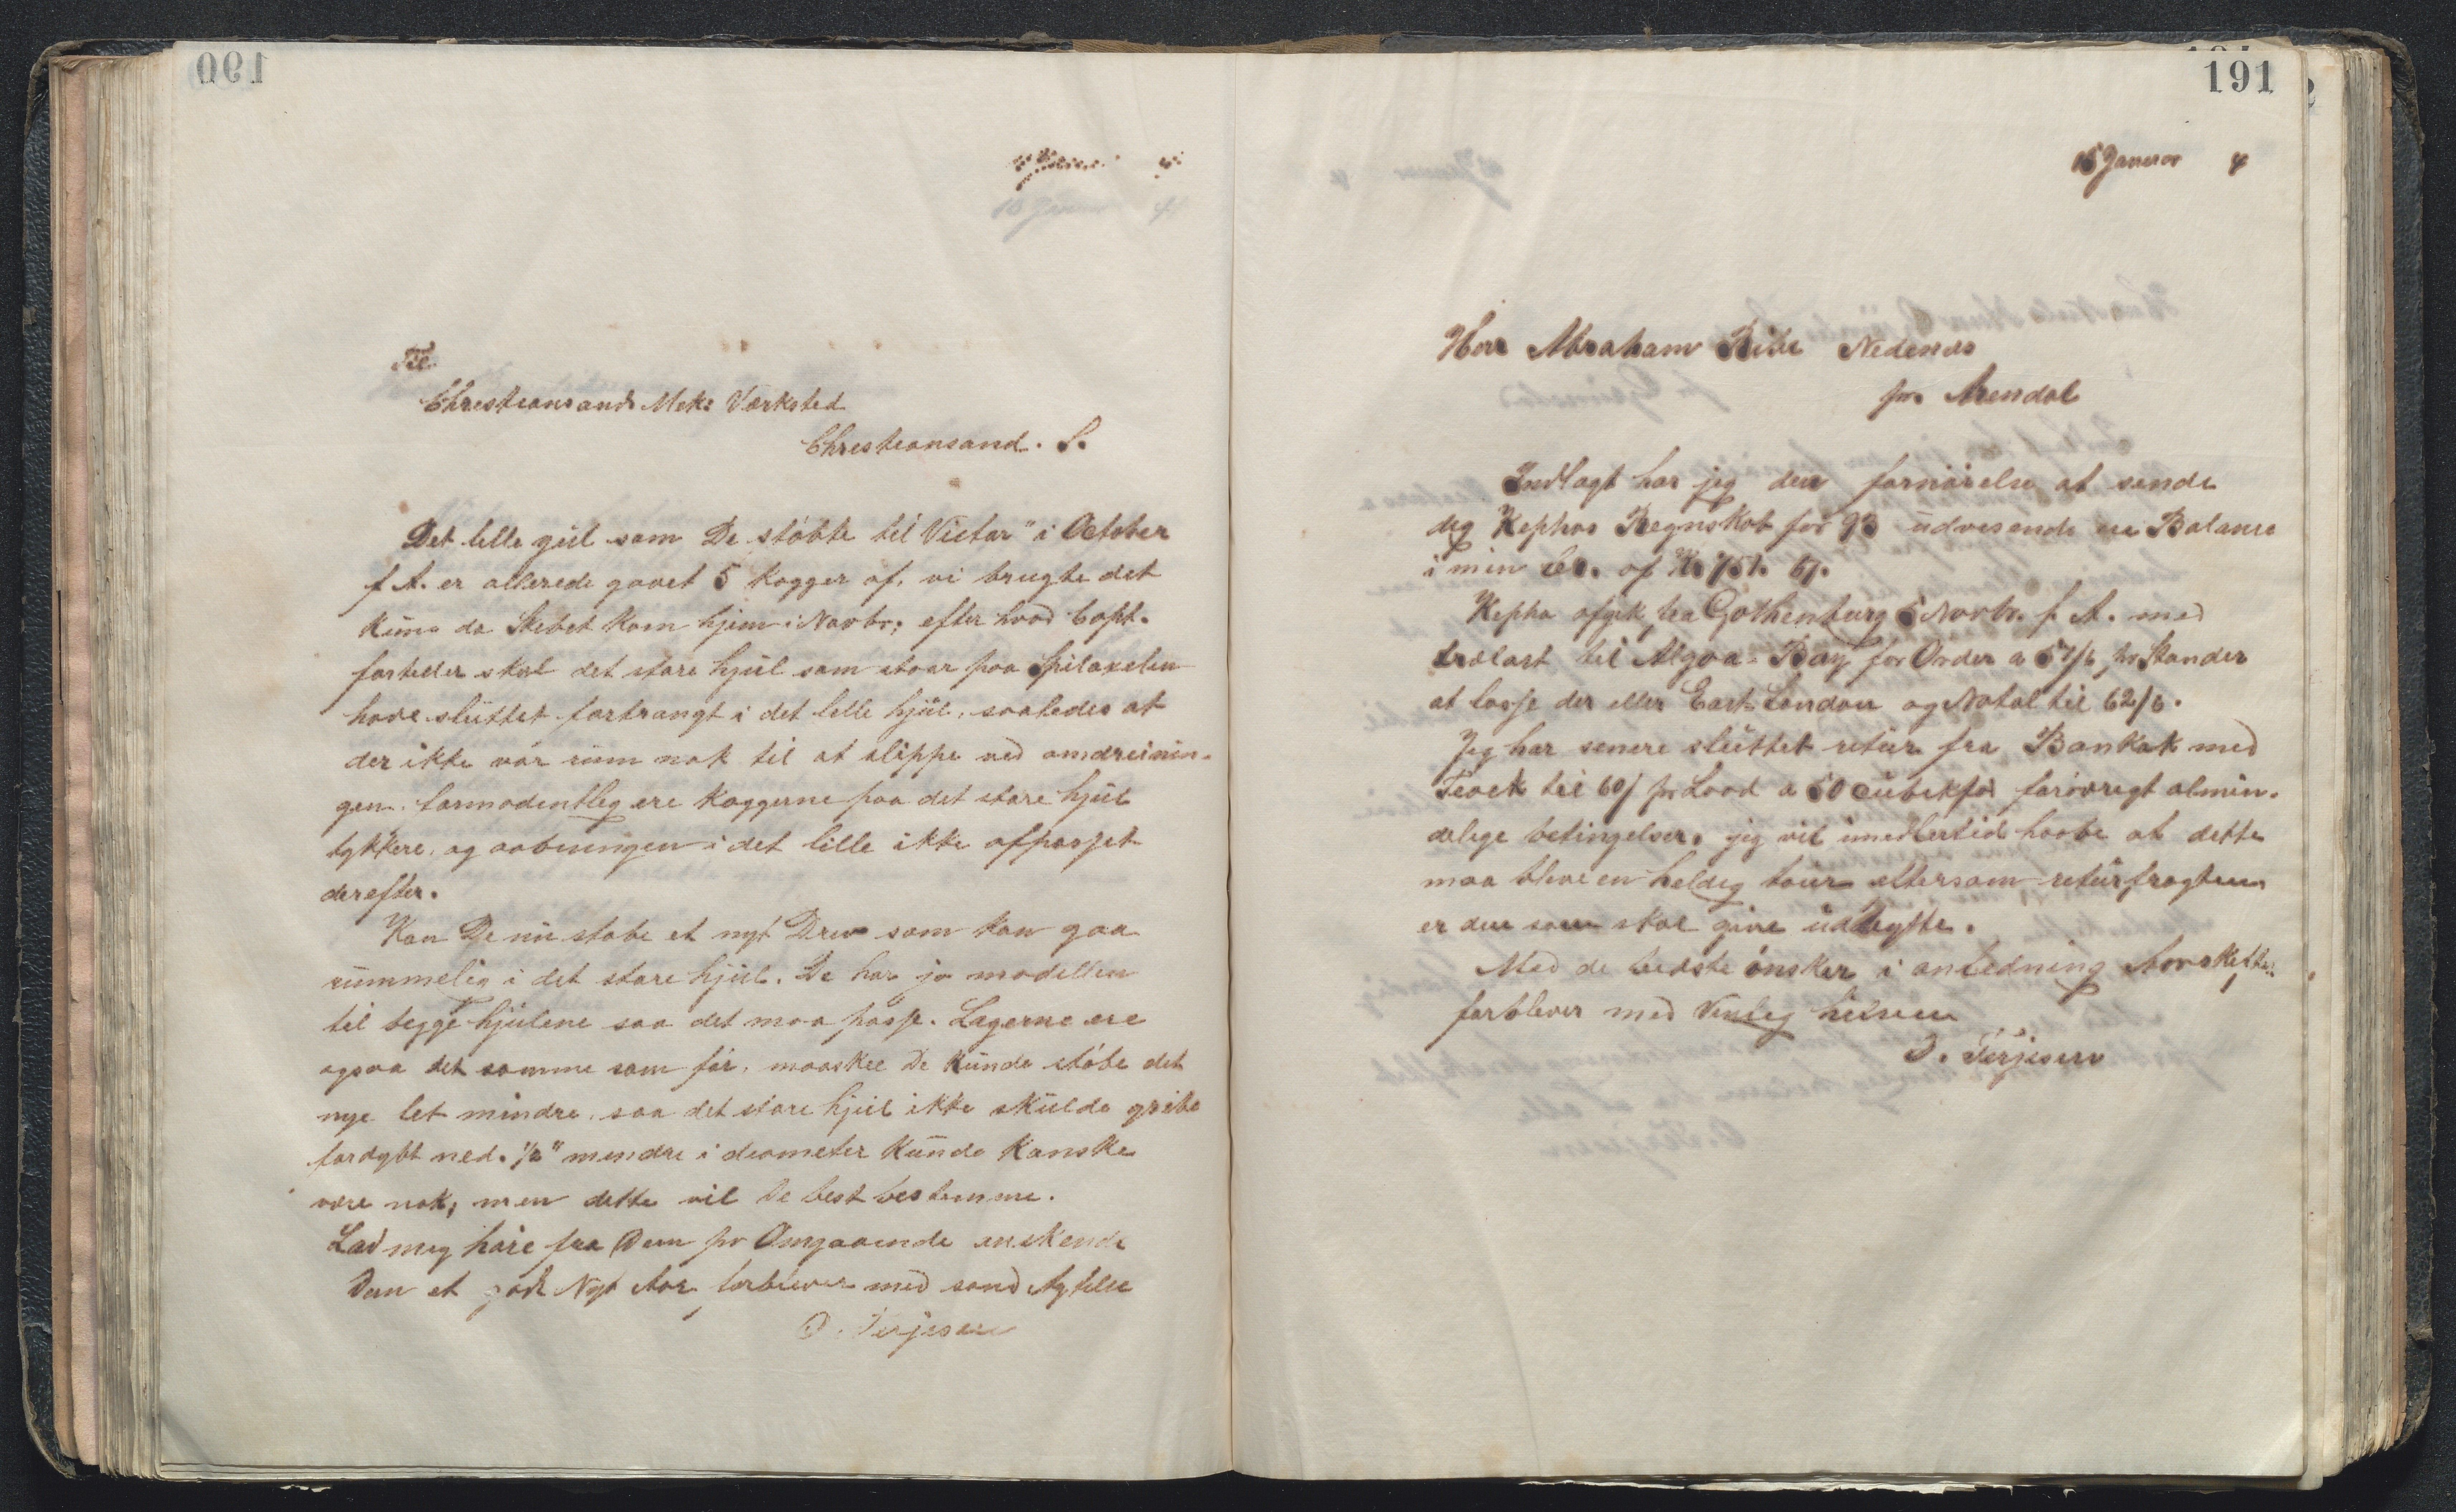 190
10 Januar 4
Til
Christiansands Mek: Værksted
Christiansand. S.
Det lille hjul som De støbte til Victor" i October
f A. er allerede gaaet 5 Kogger af, vi brugte det
kuns da Skibet kom hjem i Novbr; efter hvad Capt.
forteller skal det store hjul som staar paa Spilaxelen
have sluttet fortrangt i det lille hjul, saaledes at
der ikke var rum nok til at slippe ved omdreinin-
gen. formodentlig ere Koggerne paa det store hjul
tykkere, og aabningen i det lille ikke afpasset
derefter.
Kan De nu støbe et nyt Drev som kan gaa
rummelig i det store hjul. De har jo modellen
til begge hjulene saa det maa passe. Lagerne ere
ogsaa det samme som før, maaskee De kunde støbe det
nye let mindre, saa det store hjul ikke skulde gribe
fordybt ned. 1/2" mindre i diameter kunde kanske
være nok, men dette vil De best bestemme.
Lad mig høre fra Dem pr Omgaaende ønskende
Dem et godt Nyt Aar forbliver med sand Agtelse
O. Terjesen
191
15 Januar 4
Herr Abraham Bibe Nedenes
pr. Arendal
Indlagt har jeg den fornøielse at sende
dig Kephas Regnskab for 93 udvisende en Balance
i min af Kr 751. 61.
Kepha afgik fra Gothenburg 5 Novbr. f A. med
trælast til Algoa-Bay for Order a 57/6 pr Stander
at losse der eller East London og Natal til 62/6.
Jeg har senere sluttet retur fra Bankok med
Teack til 60/ pr Load a 50 cubikfod forøvrigt almin-
delige betingelser. jeg vil imedlertid haabe at dette
maa blive en heldig tour eftersom returfragten
er den som skal give udbytte.
Med de bedste ønsker i anledning Aarskiftet
forbliver med Venlig hilsen
O. Terjesen